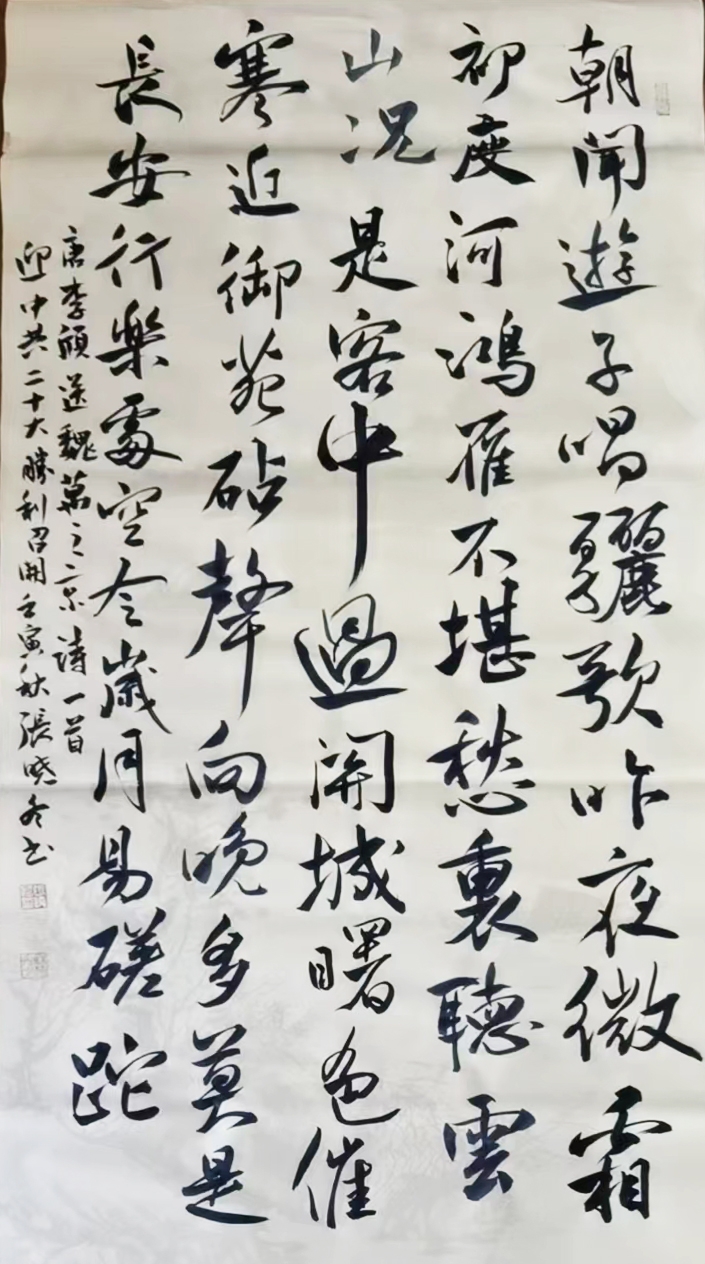 朝聞遊子唱驪歌昨夜微霜
初度河鴻雁不堪愁裏聽雲
山況是客中過關城曙色催
寒近御苑砧聲向晚多莫是
長安行樂處空令歲月易磋跎
唐李頎送魏萬之京詩一首
迎中共二十大勝利召開壬寅秋張曉冬书